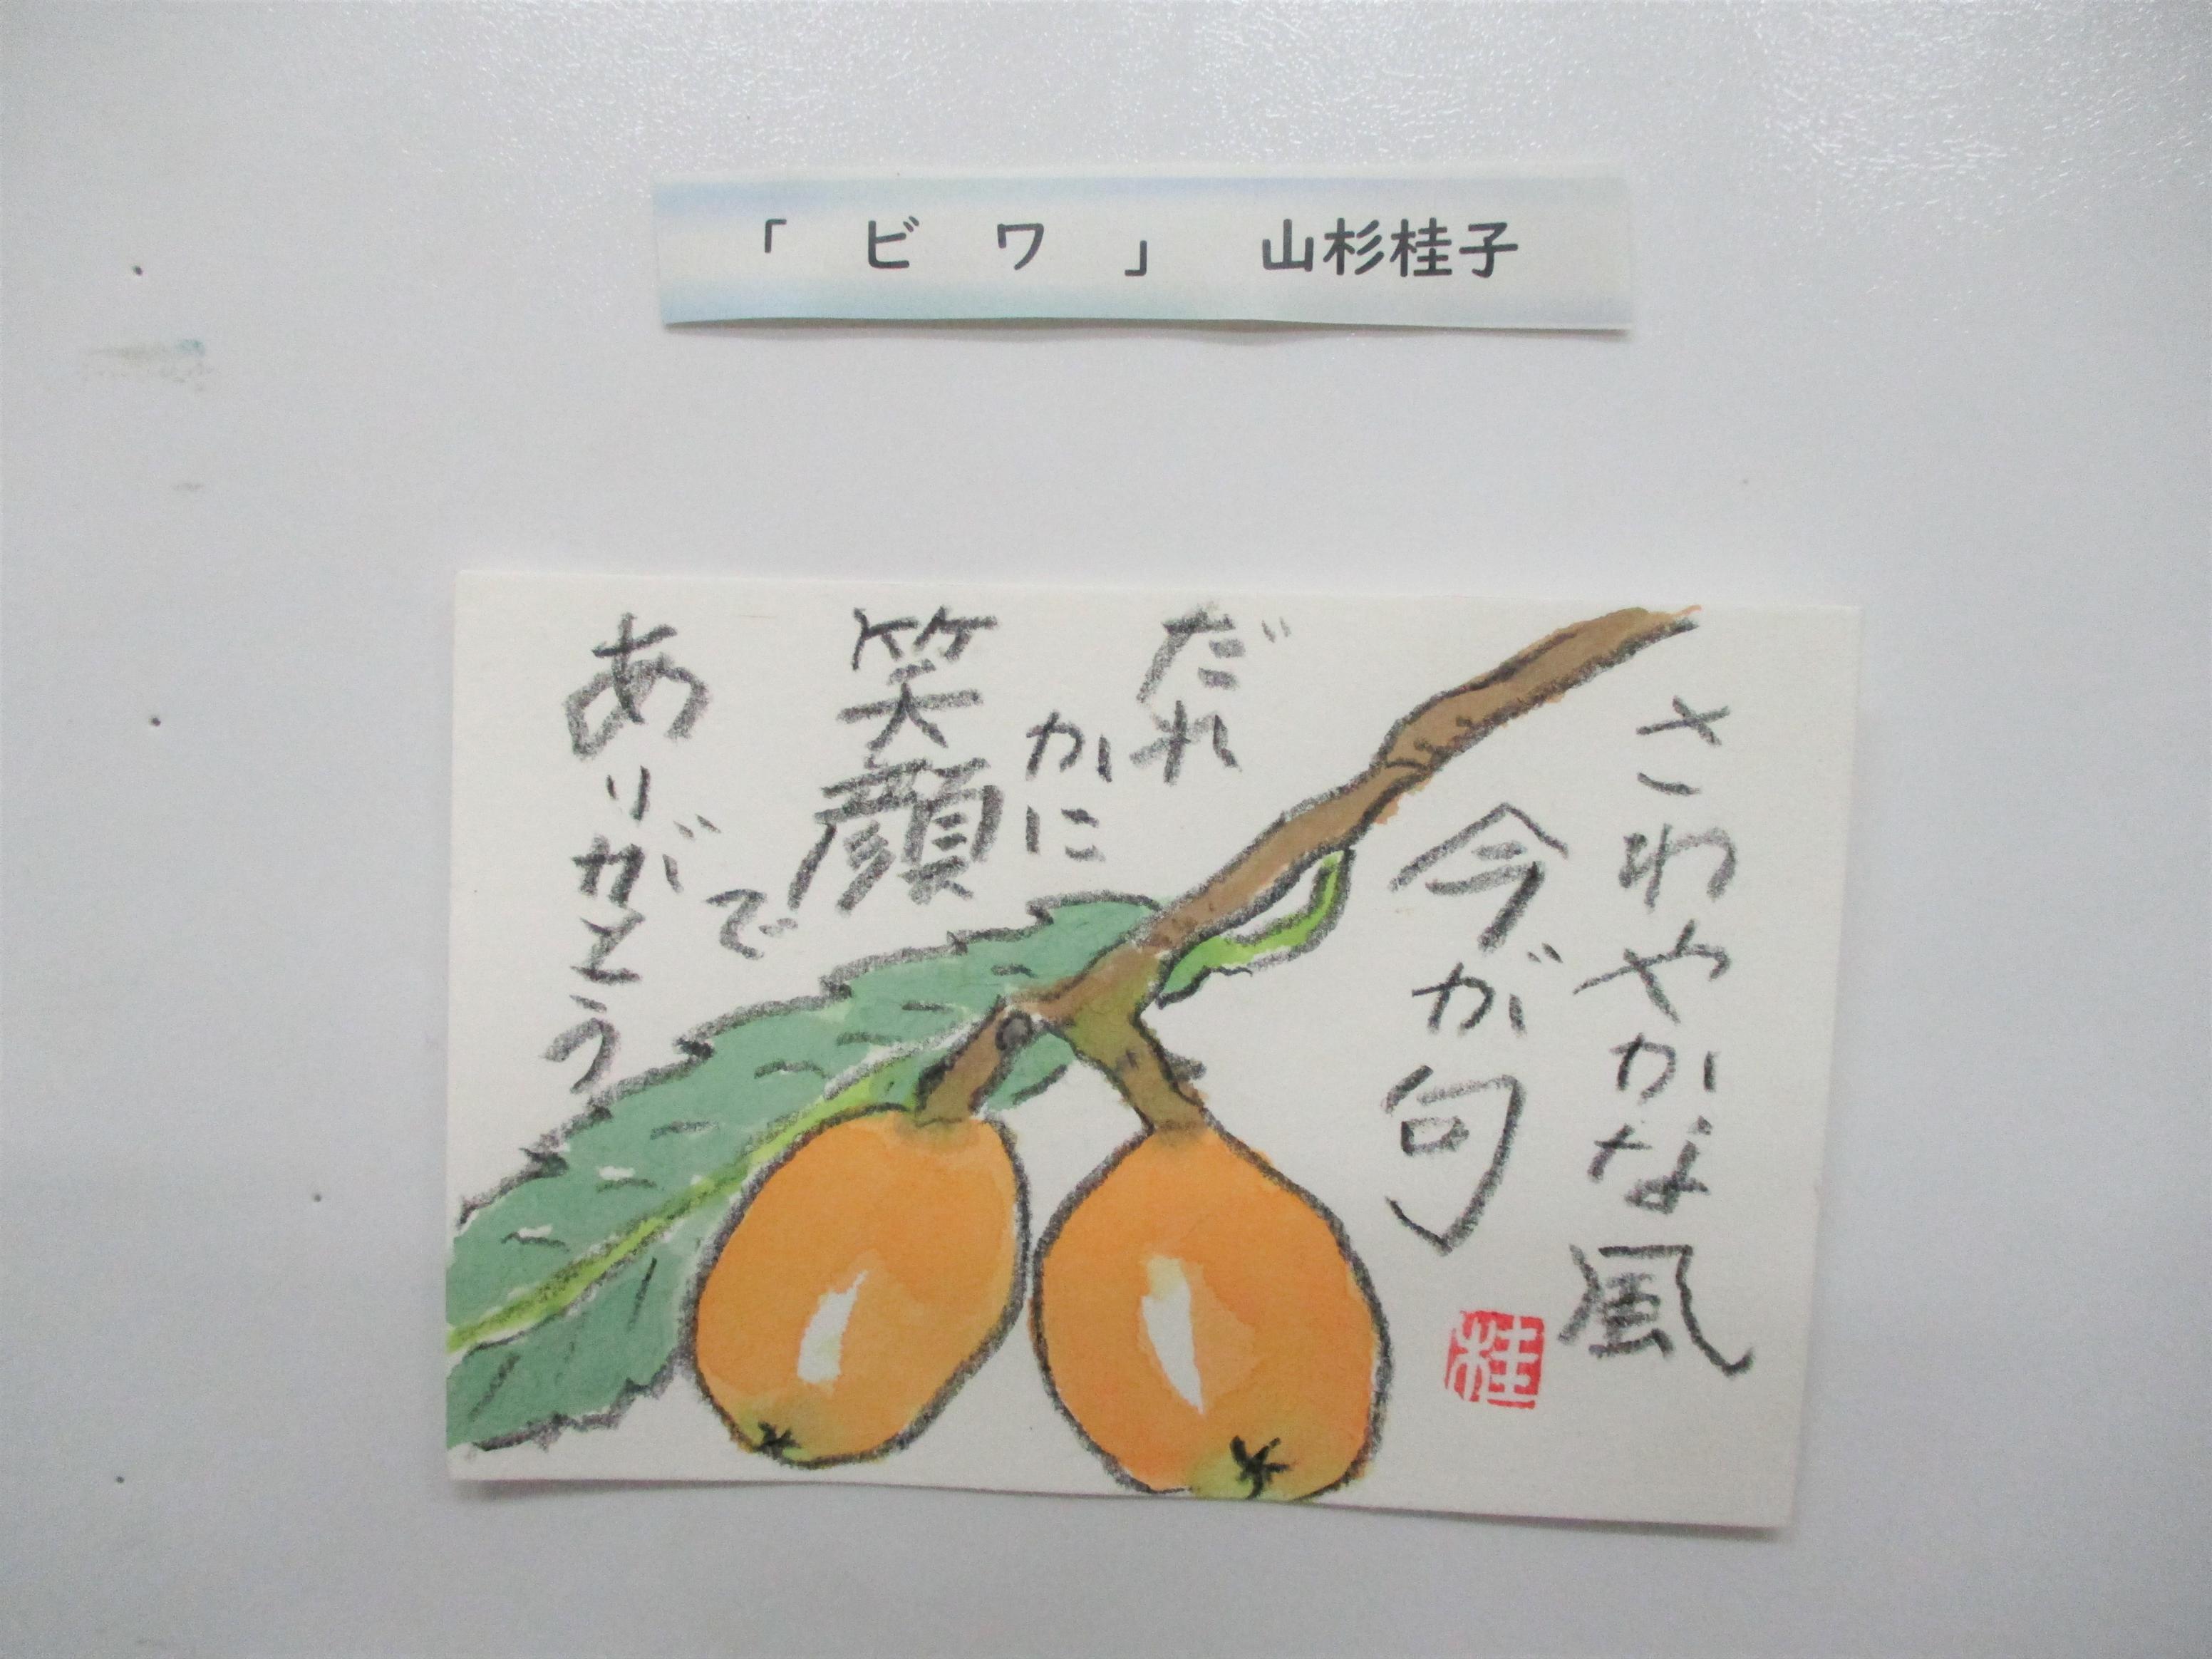 「 ビ ワ 」 山杉桂子
さわやかな風
今が旬
だれ
かに
笑顔
で
ありがとう
桂